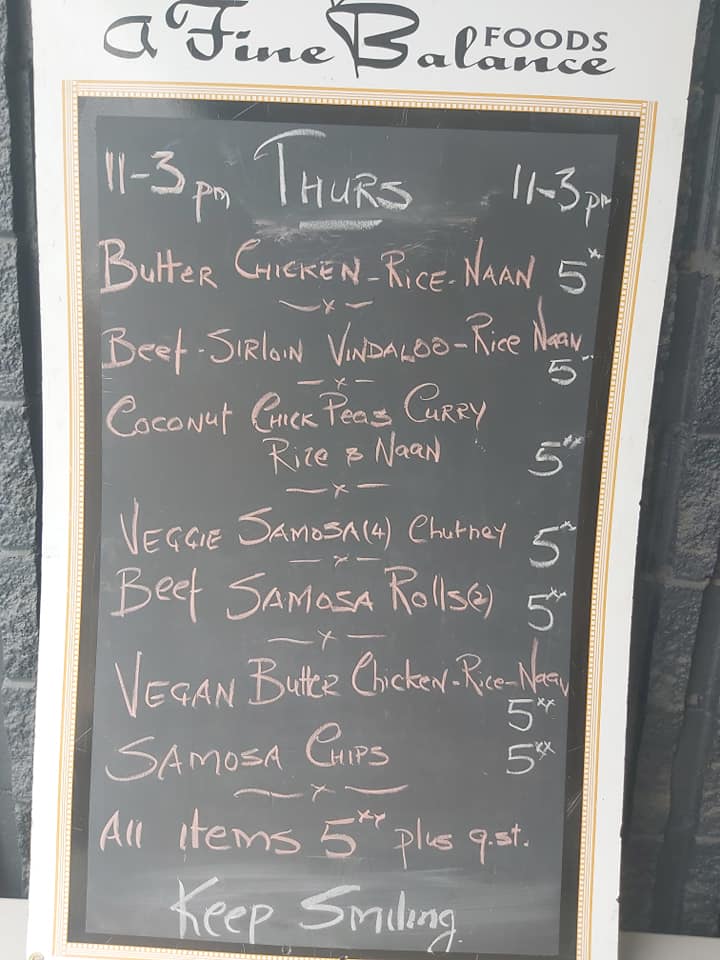 a Fine Balance FOODS
11-3 pm THURS 11-3 pm
Butter CHICKEN - RICE - NAAN 5xx
Beef - SIRloIN VINDALOO - Rice Naan
5xx
COCONUT CHICK Peas CURRY
Rice & NAAN 5xx
VEGGIE SAMOSA (4) Chutney 5xx
Beef SAMOSA Rolls (2) 5xx
VEGAN Butter Chicken - Rice - Naan
5xx
SAMOSA CHIPS 5xx
All items 5xx plus g.st.
Keep Smiling